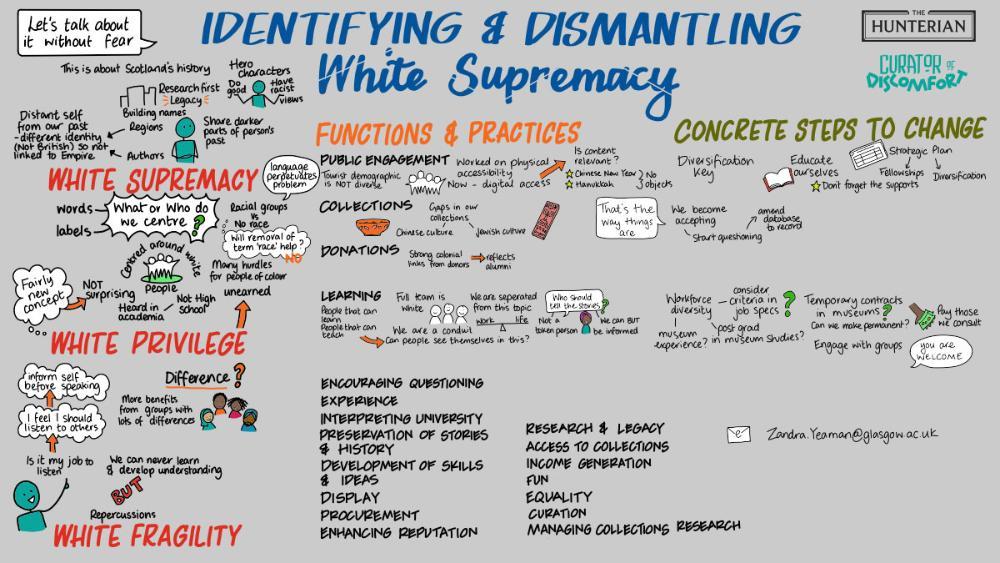 Let's talk about
it without fear
IDENTIFYING & DISMANTLING
White Supremacy
THE
HUNTERIAN
CURATOR OF
DISCOMFORT
This is about Scotland's history
Hero
characters
Do
good
Have
racist
views
Research first
Legacy
Building names
Distant self
from our past
- different identity
(Not British) so not
linked to Empire
Regions
Authors
Share darker
parts of person's
past
WHITE SUPREMACY
language
perpetuates
problem
words
labels
What or Who do
we centre?
Racial groups
vs
No race
Will removal of
term 'race' help?
NO
Centred around white
people
Many hurdles
for people of colour
unearned
Fairly
new
concept
NOT
surprising
Heard in
academia
Not High
school
WHITE PRIVILEGE
inform self
before speaking
I feel I should
listen to others
Is it my job to
listen
Difference?
More benefits
from groups with
lots of differences
We can never learn
& develop understanding
BUT
Repercussions
WHITE FRAGILITY
FUNCTIONS & PRACTICES
PUBLIC ENGAGEMENT
Tourist demographic
is NOT diverse
Worked on physical
accessibility
Now - digital access
Is content
relevant?
Chinese New Year
Hanukkah
No
objects
COLLECTIONS
Gaps in our
collections
Chinese culture
Jewish culture
DONATIONS
Strong colonial
links from donors
reflects
alumni
LEARNING
People that can
learn
People that can
teach
Full team is
White
We are a conduit
We are seperated
from this topic
work
life
Can people see themselves in this?
Who should
tell the stories?
Not a
token person
We can BUT
be informed
ENCOURAGING QUESTIONING
EXPERIENCE
INTERPRETING UNIVERSITY
PRESERVATION OF STORIES
& HISTORY
DEVELOPMENT OF SKILLS
& IDEAS
DISPLAY
PROCUREMENT
ENHANCING REPUTATION
RESEARCH & LEGACY
ACCESS TO COLLECTIONS
INCOME GENERATION
FUN
EQUALITY
CURATION
MANAGING COLLECTIONS RESEARCH
CONCRETE STEPS TO CHANGE
Diversification
Key
Educate
ourselves
Don't forget the supports
Strategic Plan
Fellowships
Diversification
That's the
way things
are
We become
accepting
Start questioning
amend
database
to record
Workforce
diversity
museum
experience?
consider
criteria in
job specs?
post grad
in museum studies?
Temporary contracts
in museums?
Can we make permanent?
Engage with groups
Pay those
we consult
you are
WELCOME
Zandra.Yeaman@glasgow.ac.uk